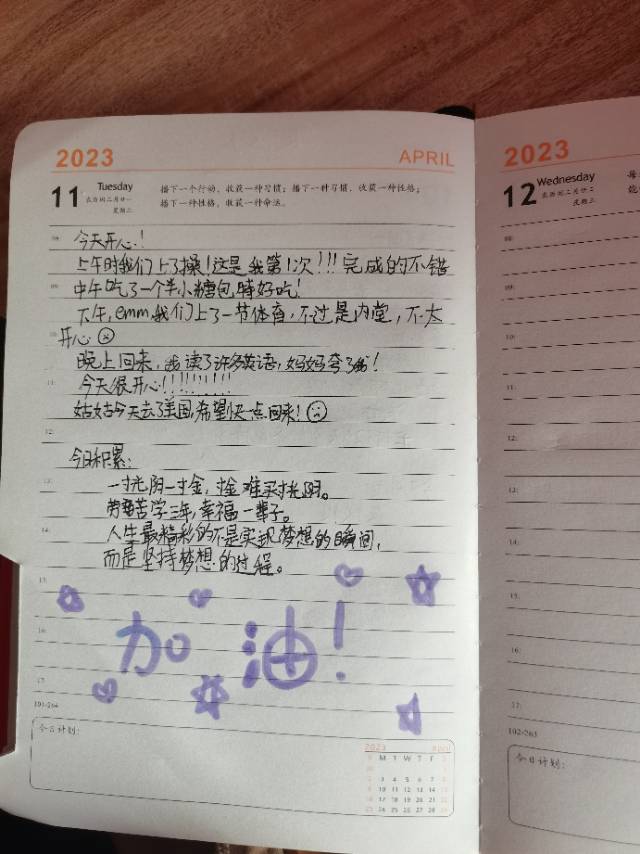 2023
APRIL
11
Tuesday
农历闰二月廿一
星期二
播下一个行动，收获一种习惯；播下一种习惯，收获一种性格；
播下一种性格，收获一种命运。
今天开心！
上午时我们上了操！这是我第1次！！！完成的不错
中午吃了一个羊小糖包，特好吃！
下午，emm，我们上了一节体育，不过是内堂，不太
开心
晚上回来，我读了许多英语，妈妈夸了我！
今天很开心！！！！！！！！！
姑姑今天去了美国，希望快一点回来！
今日积累：
一寸光阴一寸金，寸金难买寸光阴。
劳苦学三年，幸福一辈子。
人生最精彩的不是实现梦想的瞬间，
而是坚持梦想的过程。
加油！
101-264
今日计划：
2023 April
S M T W T F S
2 3 4 5 6 7 8
9 10 11 12 13 14 15
16 17 18 19 20 21 22
23 24 25 26 27 28 29
2023
12
Wednesday
农历闰二月廿二
星期三
08:
09:
10:
11:
12:
13:
14:
15:
16:
17:
102-263
今日计划：